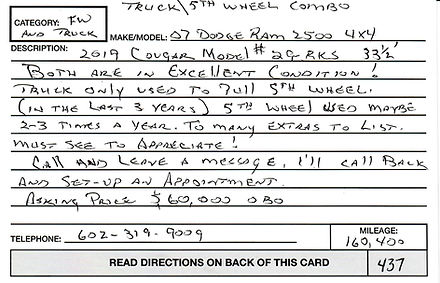 TRUCK/5TH WHEEL COMBO
CATEGORY: FW
AND TRUCK
MAKE/MODEL: 07 DODGE RAM 2500 4x4
DESCRIPTION: 2019 COUGAR MODEL# 29 RKS 33½'
BOTH ARE IN EXCELLENT CONDITION!
TRUCK ONLY USED TO PULL 5TH WHEEL.
(IN THE LAST 3 YEARS) 5TH WHEEL USED MAYBE
2-3 TIMES A YEAR. TO MANY EXTRAS TO LIST.
MUST SEE TO APPRECIATE!
CALL AND LEAVE A MESSAGE, I'LL CALL BACK
AND SET-UP AN APPOINTMENT.
ASKING PRICE $60,000 OBO
TELEPHONE: 602-319-9009
MILEAGE:
160,400
READ DIRECTIONS ON BACK OF THIS CARD
437